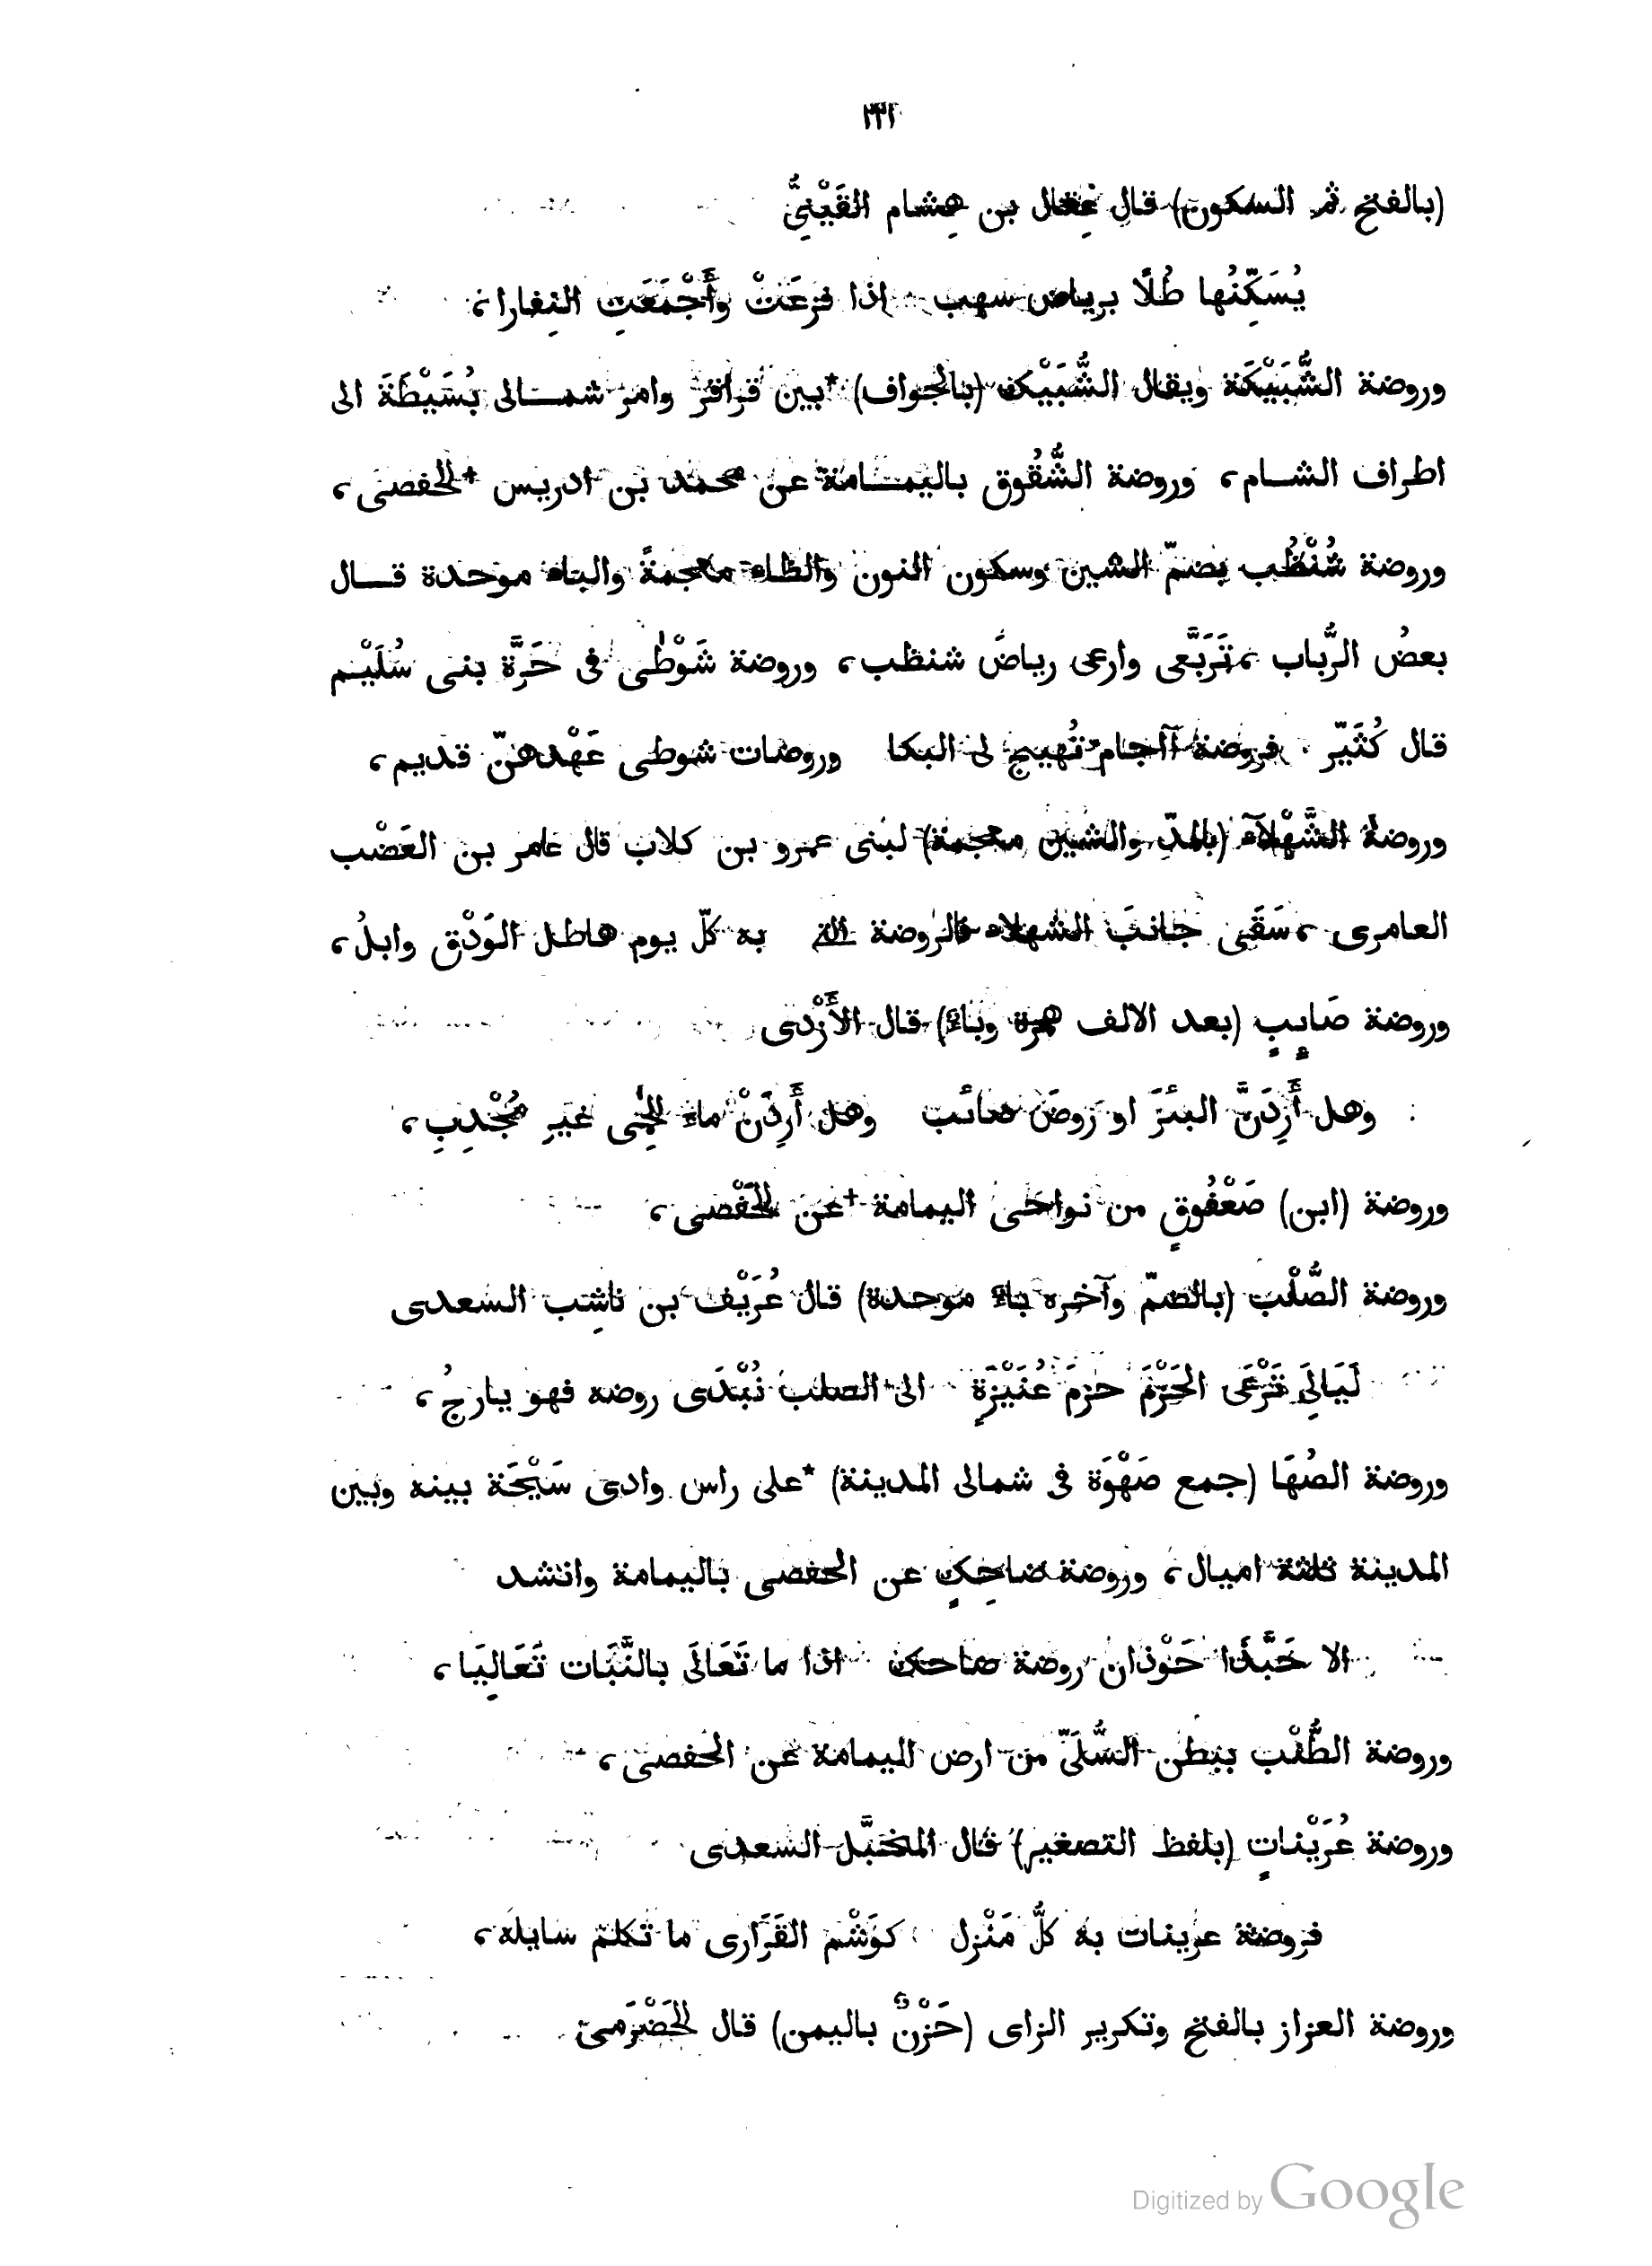 ٢٢١
(بالفتح ثم السكون) قال عِقال بن هِشام القَيْنىُّ
يُسَكِّنُها طُلًا برياض سهب اذا فزعَتْ وأَجْمَعَتِ النِفارا،
وروضة الشُّبَيْكَة ويقال الشُّبَيْك (بالجواف) *بين قراقر وامر شمالى بُسَيْطَةَ الى
اطراف الشام، وروضة الشُّقُوق باليمامة عن محمد بن ادريس *الحفصى،
وروضة شُنْظُب بضمّ الشين وسكون النون والظاء معجمةً والباء موحدة قال
بعضُ الرُّباب، تَرَبَّعى وارعى رياضَ شنظب، وروضة شَوْطٰى فى حَرَّة بنى سُلَيْم
قال كُثَيّر فروضة آاجام تُهيج لى البكا وروضات شوطى عَهْدهنّ قديم،
وروضة الشَّهْلآء (بالمدّ والشين معجمة) لبنى عمرو بن كلاب قال عامر بن العَضْب
العامرى، سَقَى جانبَ الشهلاء فالروضة التى به كلّ يوم هاطل الوَدْق وابلُ،
وروضة صَايبٍ (بعد الالف همزة وباء) قال الأَزْدى
وهل أَرِدَنَّ البئرَ او رَوضَ صائب وهل أَرِدَنْ ماء الحِمَى غير مُجْدِبِ،
وروضة (ابن) صَعْفُوقٍ من نواحى اليمامة *عن الحَفْصى،
وروضة الصُّلْب (بالضمّ وآخره باء موحدة) قال عُرَيْف بن ناشِب السعدى
لَيَالِىَ تَرْعَى الحَزْمَ حزمَ عُنَيْزَةٍ الى الصلب نُبْدَى روضه فهو يارجُ،
وروضة الصُهَا (جمع صَهْوَة فى شمالى المدينة) *على راس وادى سَيْحَة بينه وبين
المدينة ثلثة اميال، وروضة ضاحِكٍ عن الحفصى باليمامة وانشد
الا حَبَّذَا حَوْذان روضة ضاحك اذا ما تَعَالَى بالنَّبَات تَعَالِيَا،
وروضة الطُّنْب ببطن السُّلَىّ من ارض اليمامة عن الحفصى،
وروضة عُرَيْناتٍ (بلفظ التصغير) قال المخبَّل السعدى
فروضة عرينات به كلُّ مَنْزِل كوَشْم القَرَارى ما تكلم سايله،
وروضة العزاز بالفتح وتكرير الزاى (حَزْنٌ باليمن) قال الحَضْرَمىّ
Digitized by Google